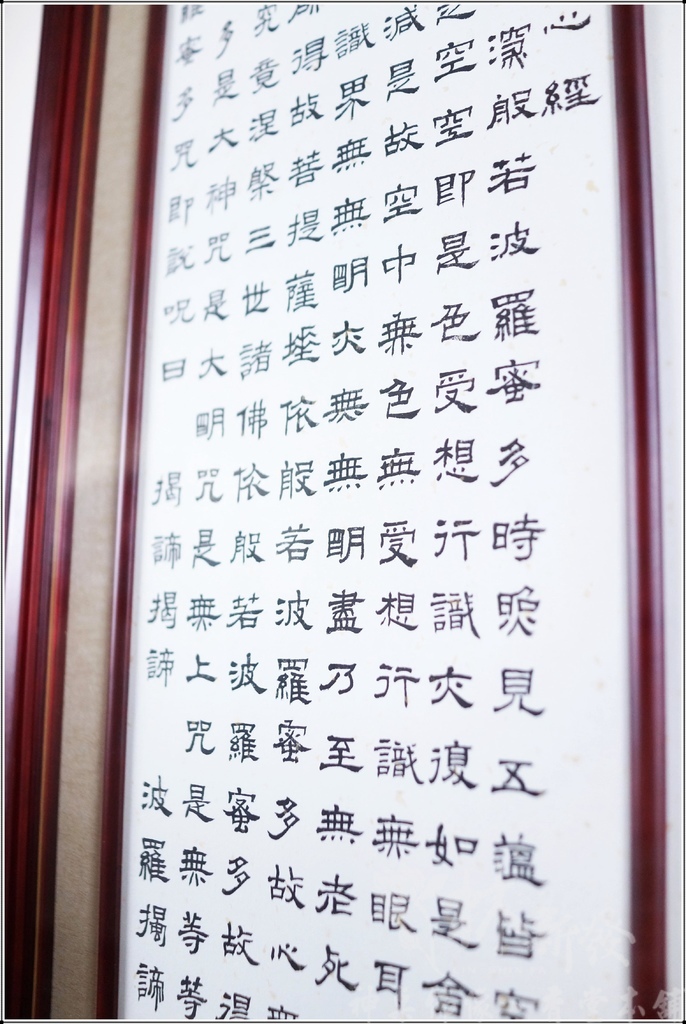 心經
深般若波羅蜜多時照見五蘊皆空
空空即是色受想行識亦復如是舍
減是故空中無色無受想行識無眼耳
識界無無明亦無無明盡乃至無老死
得故菩提薩埵依般若波羅蜜多故心無
究竟涅槃三世諸佛依般若波羅蜜多故得
多是大神咒是大明咒是無上咒是無等等
蜜多咒即說呪曰 揭諦揭諦 波羅揭諦